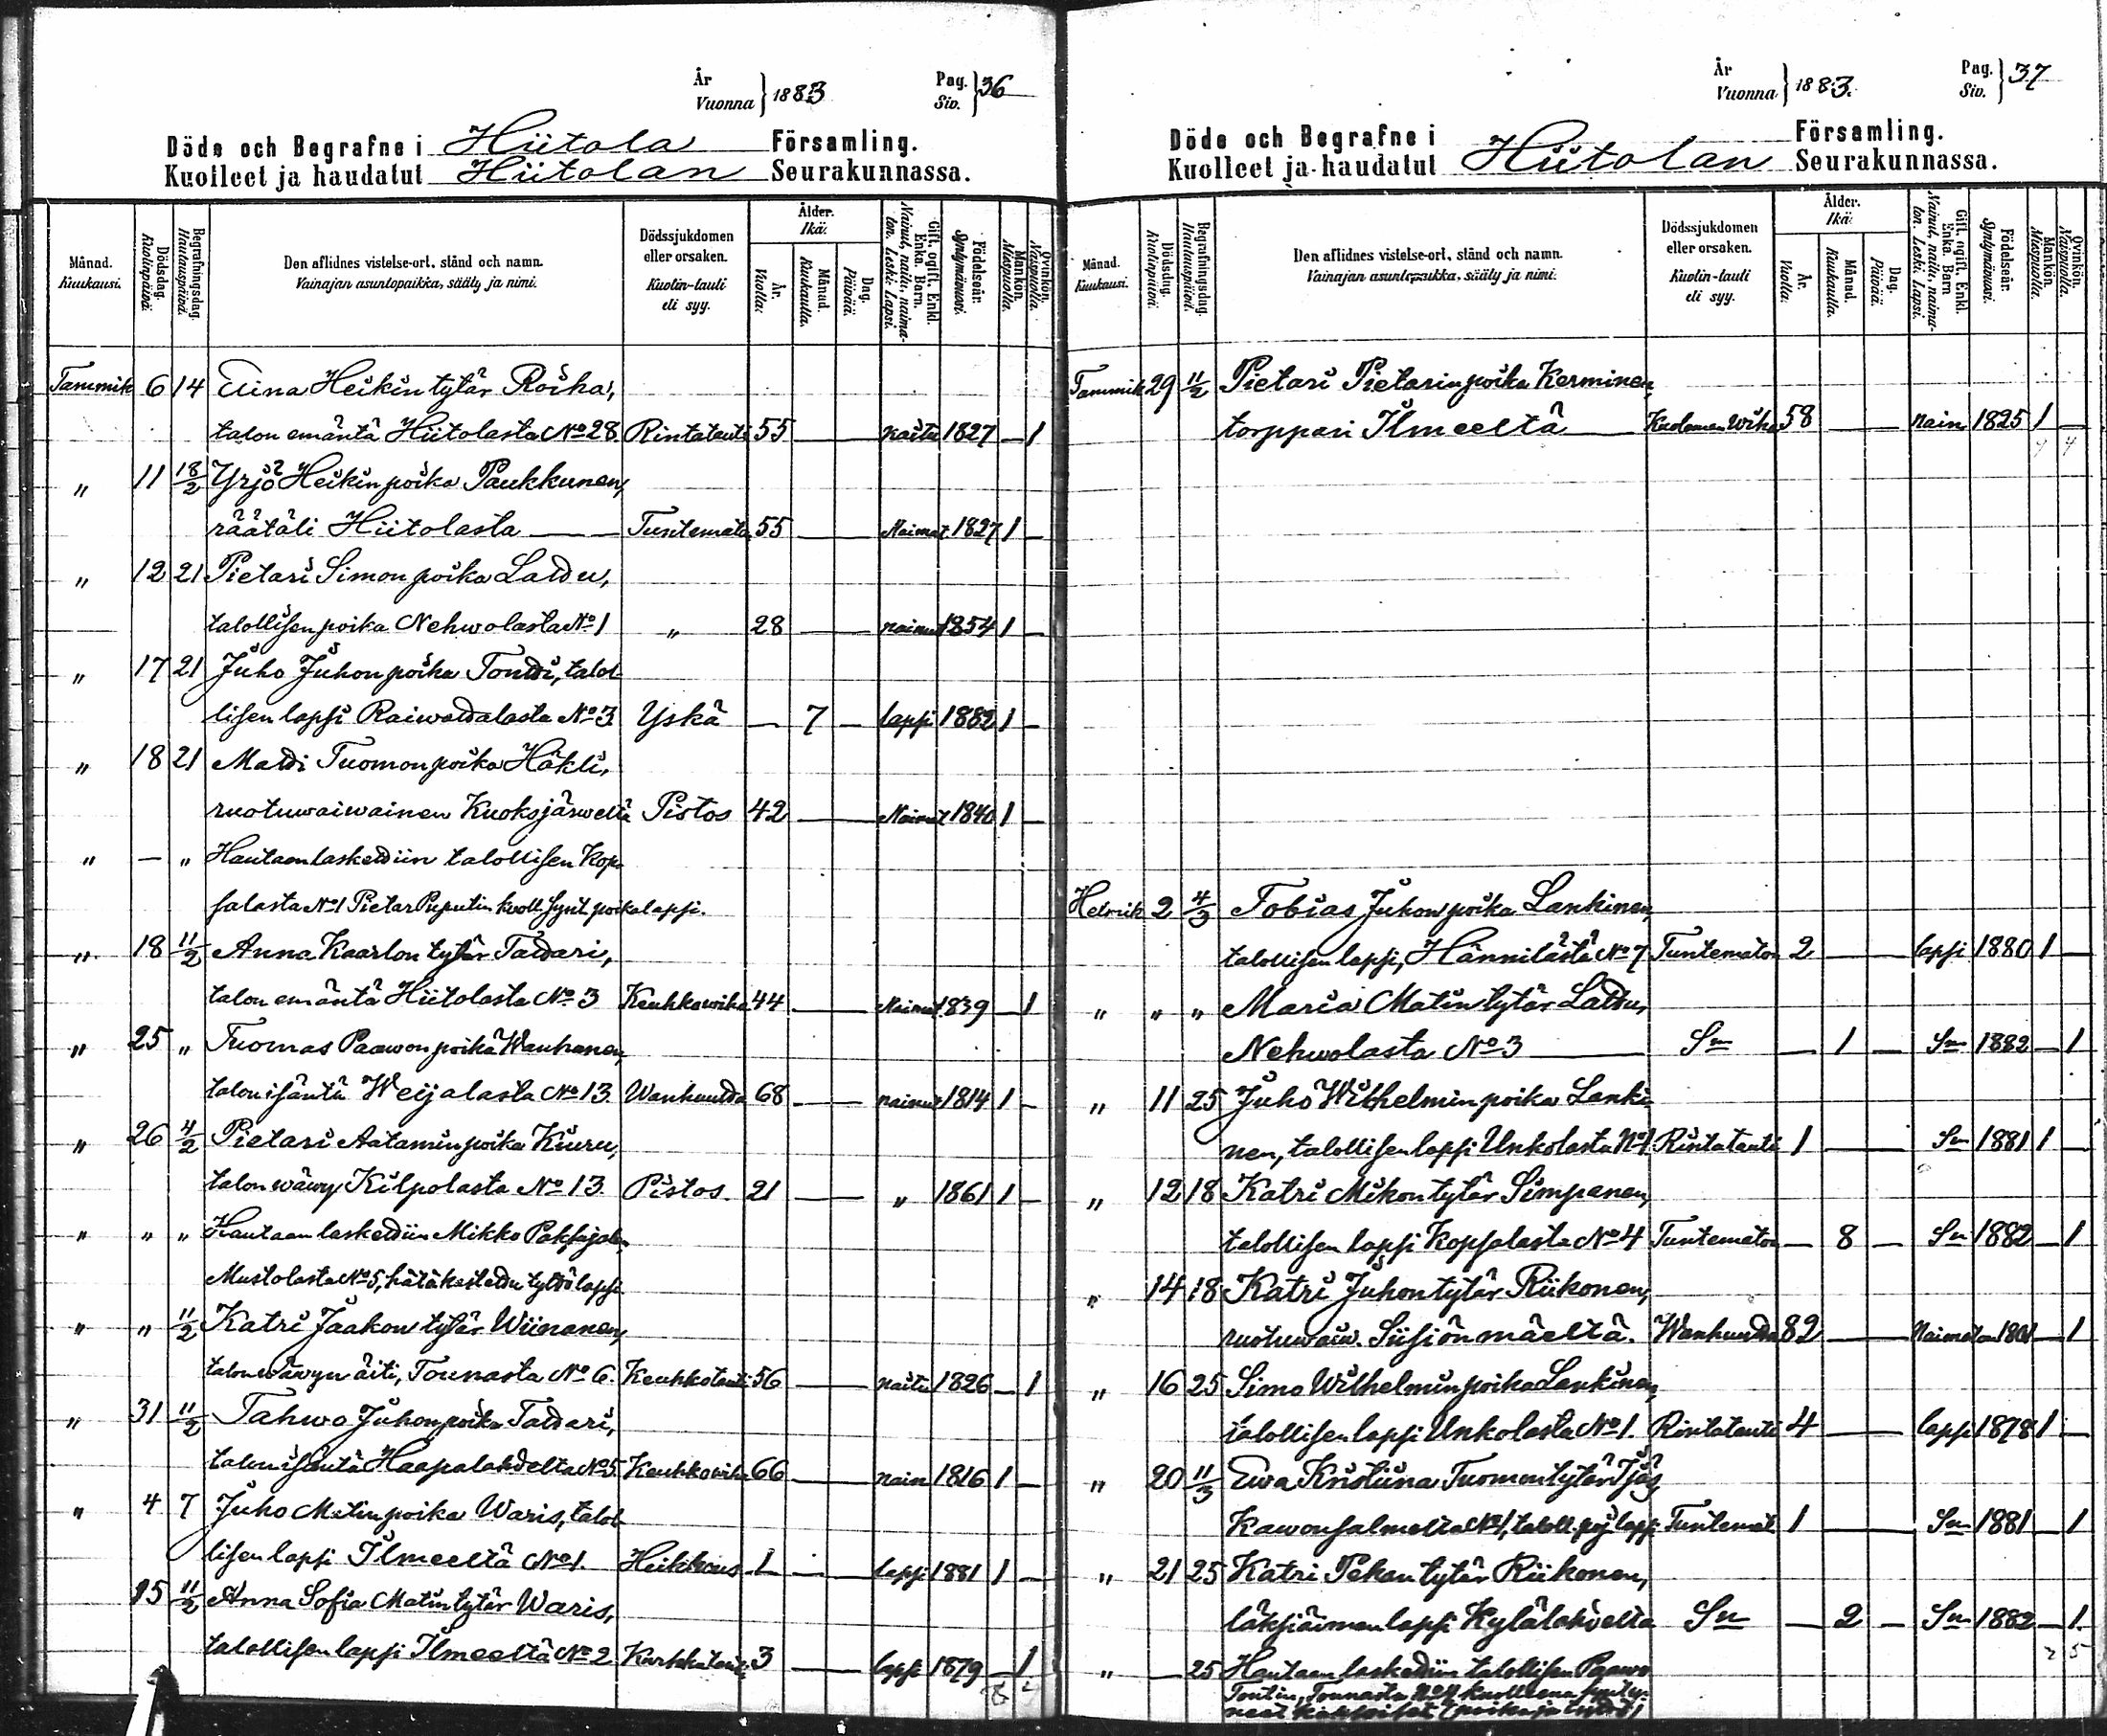 År
Vuonna } 1883
Pag.
Siv. } 36
Döde och Begrafne i Hiitola Församling.
Kuolleet ja haudatut Hiitolan Seurakunnassa.
Månad. Kuukausi.
Dödsdag. Kuolinpäivä.
Begrafningsdag. Hautauspäivä.
Den aflidnes vistelse-ort, stånd och namn.
Vainajan asuntopaikka, sääty ja nimi.
Dödssjukdomen eller orsaken.
Kuolin-tauti eli syy.
Ålder. Ikä.
År. Vuotta.
Månad. Kuukautta.
Dag. Päivää.
Gift, ogift, Enkl. Enka. Barn.
Nainut, naitu, naimaton. Leski. Lapsi.
Födelseår. Syntymävuosi.
Mankön. Miespuolia.
Qvinkön. Naispuolia.
Tammik 6 14 Elina Heikin tytär Roiha,
talon emäntä Hiitolasta No 28 Rintatauti 55 — naitu 1827 — 1
" 11 18/2 Yrjö Heikin poika Paukkunen,
räätäli Hiitolasta — Tuntemato 55 — Naimat 1827 1 —
" 12 21 Pietari Simon poika Lattu,
talollisen poika Nehwolasta No 1 " 28 — nainut 1854 1 —
" 17 21 Juho Juhon poika Tontti, talol-
lisen lapsi Raiwattalasta No 3 Yskä — 7 — lapsi 1882 1 —
" 18 21 Matti Tuomon poika Häkli,
ruotuwaiwainen Kuoksjärweltä Pistos 42 — Nainut 1840 1 —
" — " Hautaan laskettiin talollisen Kop-
salasta No 1 Pietar Puputin kuoll. synt. poikalapsi.
" 18 11/2 Anna Kaarlon tytär Tattari,
talon emäntä Hiitolasta No 3 Keuhkowika 44 — Nainut 1839 — 1
" 25 " Tuomas Paawon poika Wanhanen,
talon isäntä Weijalasta No 13. Wanhuutta 68 — nainut 1814 1 —
" 26 4/2 Pietari Aatamin poika Kiuru,
talon wäwy Kilpolasta No 13. Pistos 21 — " 1861 1 —
" " " Hautaan laskettiin Mikko
Mustolasta No 5, hätäkastettu tyttölapsi
" " 11/2 Katri Jaakon tytär Wiinanen,
talon wäwyn äiti, Tounasta No 6. Keuhkotauti 56 — naitu 1826 — 1
" 31 11/2 Tahwo Juhon poika Tattari,
talon isäntä Haapalahdelta No 5 Keuhkowika 66 — nain 1816 1 —
" 4 7 Juho Matin poika Waris, talol-
lisen lapsi Ilmeeltä No 1. Heikkous 1 — lapsi 1881 1 —
15 11/2 Anna Sofia Matin tytär Waris,
talollisen lapsi Ilmeeltä No 2 3 — lapsi 1879 — 1
År
Vuonna } 1883.
Pag.
Siv. } 37
Döde och Begrafne i Församling.
Kuolleet ja haudatut Hiitolan Seurakunnassa.
Månad. Kuukausi.
Dödsdag. Kuolinpäivä.
Begrafningsdag. Hautauspäivä.
Den aflidnes vistelse-ort, stånd och namn.
Vainajan asuntopaikka, sääty ja nimi.
Dödssjukdomen eller orsaken.
Kuolin-tauti eli syy.
Ålder. Ikä.
År. Vuotta.
Månad. Kuukautta.
Dag. Päivää.
Gift, ogift, Enkl. Enka. Barn
Nainut, naitu, naimaton. Leski. Lapsi.
Födelseår. Syntymävuosi.
Mankön. Miespuolia.
Qvinkön. Naispuolia.
Tammik 29 11/2 Pietari Pietarin poika Kerminen,
torppari Ilmeeltä — Kuoleman wika 58 — nain 1825 1 —
Helmik 2 4/3 Tobias Juhon poika Lankinen,
talollisen lapsi, Hännilästä No 7 Tuntematon 2 — lapsi 1880 1 —
" " " Maria Matin tytär Lattu,
Nehwolasta No 3 — Sm — 1 — Sm 1882 — 1
" 11 25 Juho Wilhelmin poika Lanki-
nen, talollisen lapsi Unkolasta No 1. Rintatauti 1 — Sm 1881 1 —
" 12 18 Katri Mikon tytär Simpanen,
talollisen lapsi Kopsalasta No 4 Tuntematon — 8 — Sm 1882 — 1
" 14 18 Katri Juhon tytär Riikonen,
ruotuwaiw. Siisjönmäeltä. Wanhuutta 82 — Naimaton 1801 — 1
" 16 25 Simo Wilhelmin poika Lankinen,
talollisen lapsi Unkolasta No 1. Rintatauti 4 — lapsi 1878 1 —
" 20 11/3 Ewa Kristiina Tuomon tytär Tjäs
Kawonsalmelta No 1, taloll. poj lapsi Tuntemat 1 — Sm 1881 — 1
" 21 25 Katri Pekan tytär Riikonen,
läksiäimen lapsi Kylälahdelta Sm — 2 — Sm 1882 — 1.
2 5
" — 25 Hautaan laskettiin talollisen Paawo
Tontin, Tounasta No 4 kuolleena synty-
neet kaksoiset (poika ja tyttö)